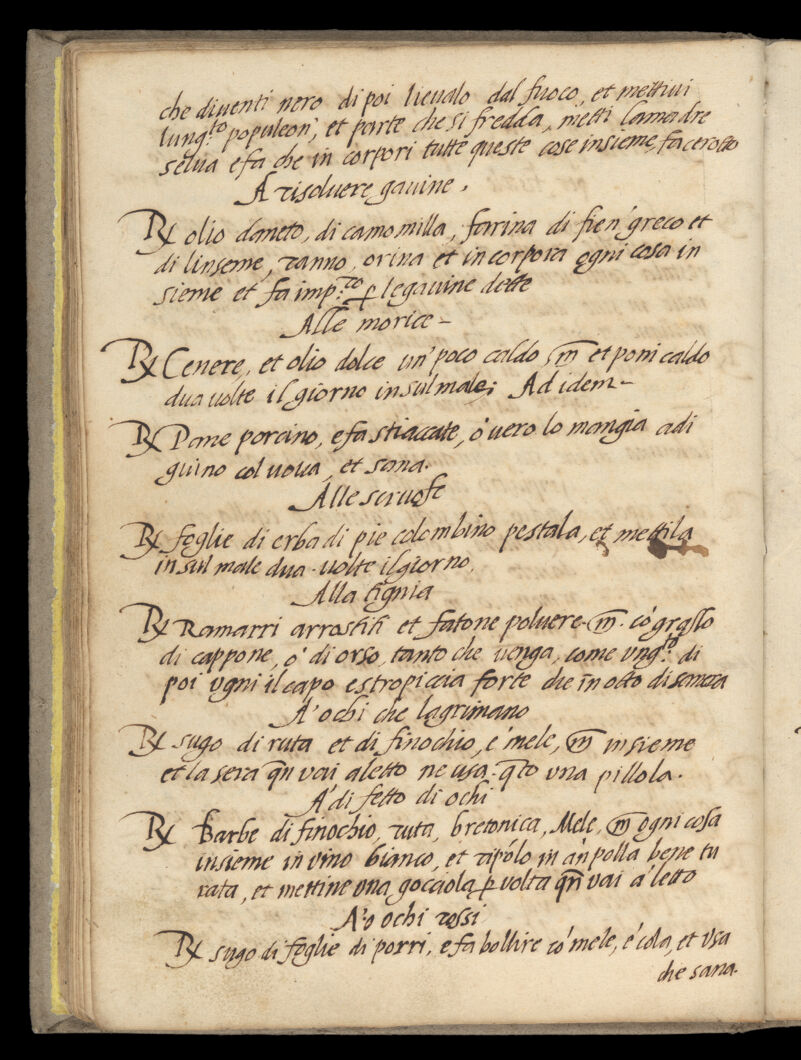 che diventi nero di poi lievalo dal fuoco, et mettivi
lung.to populeon, et parte che si fredda, metti lamadre
selva e fa che in corpori tutte queste cose insieme, fa cerotto
A risolvere gavine.
℞ olio d'aneto, di camomilla, farina di fien'greco et
di linseme, ranno, orina et incorpora ogni cosa in
sieme et fa imp.ro ꝑ le gavine dette
Alle morice-
℞ Cenere, et olio dolce un'poco caldo m̄ et poni caldo
dua volte il giorno in sul male; Ad idem-
℞ Pane porcino, e fa stiaccate, o'vero lo mangia a di
giuino col uova, et sana.
Alle scrofe
℞ foglie di erba di pie colombino pestala, et mettila
in sul male dua volte il giorno.
Alla tignia
℞ Ramarri arrostiti et fatone polvere. m̄. co'grasso
di cappone, o' di orso, tanto che venga, come ung.to di
poi ugni il capo e stropiccia forte che in otto di sana
A' ochi che lagrimano
℞ sugo di ruta et di finochio, e' mele, m̄ insieme
et la sera qn̄ vai a letto ne usa. q̄to una pillola.
A' difetto di ochi
℞ Barbe di finochio, ruta, bretonica, Mele, m̄ ogni cosa
insieme in vino bianco, et ripolo in an'polla bene tu
rata, et mettine una gocciola ꝑ volta qn̄ vai a' letto
A'o ochi rossi
℞ sugo di foglie di porri, e fa bollire co' mele, e' cola, et usa
che sana.